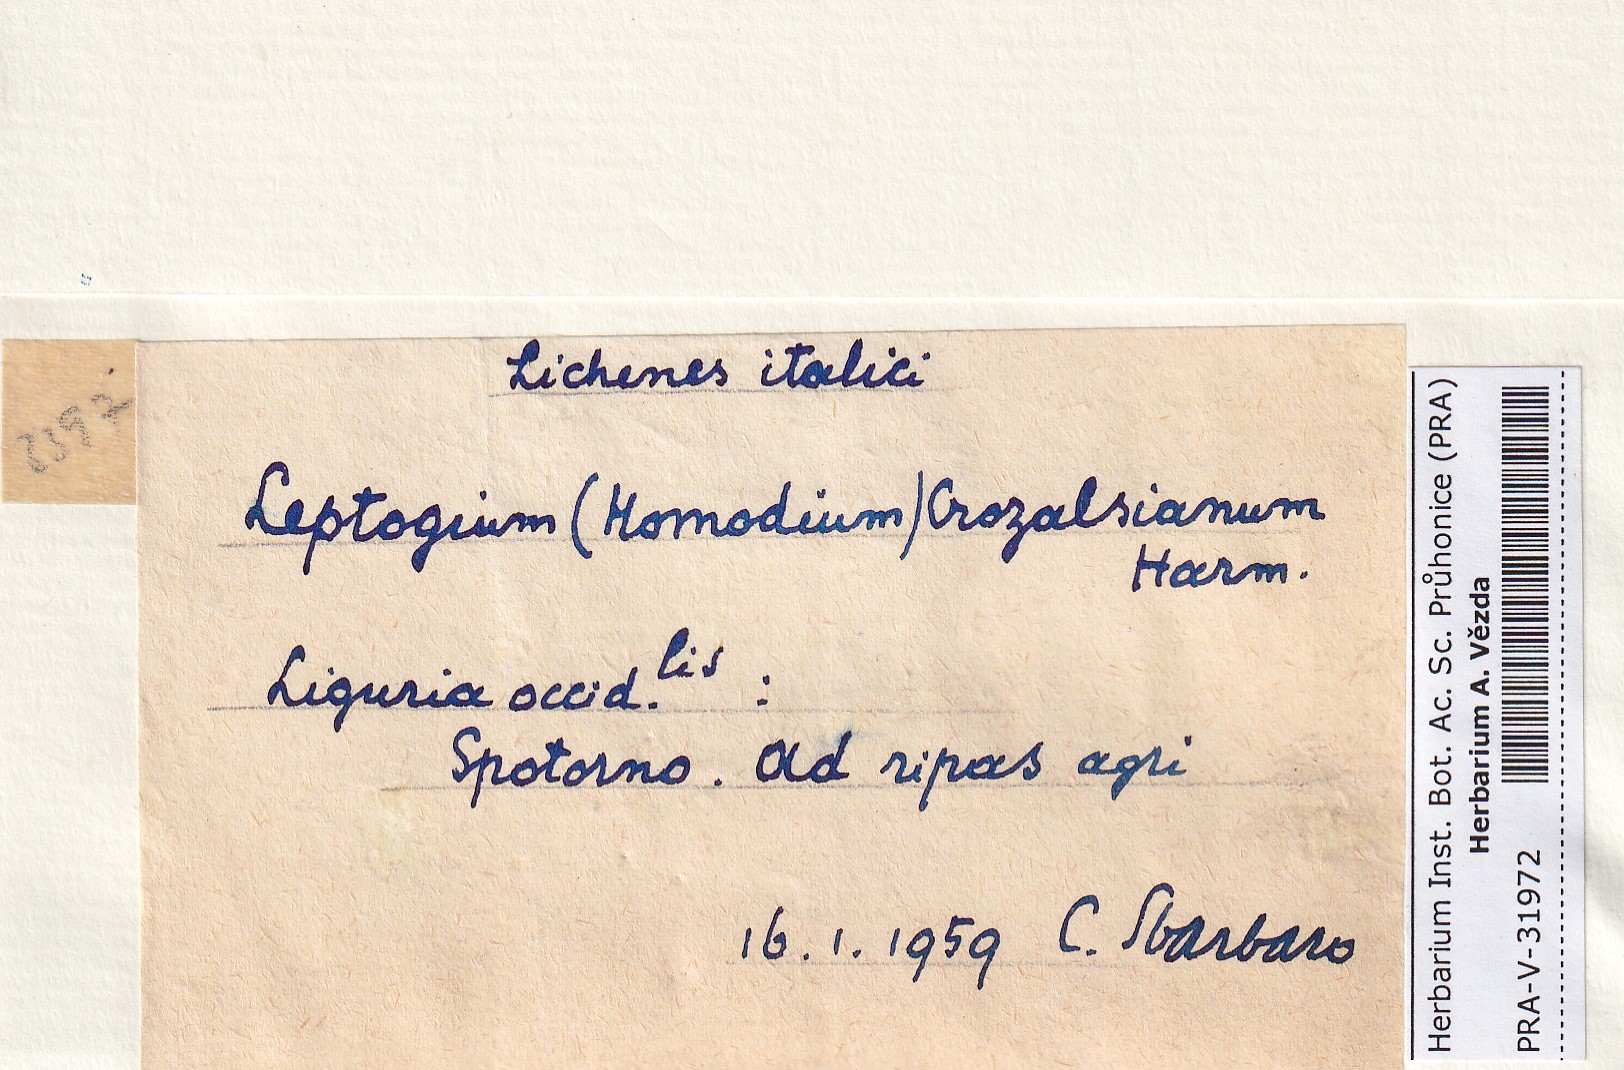 Lichenes italici
Leptogium (Homodium) Crozalsianum
Harm.
Liguria occid.lis :
Spotorno. Ad ripas agri
16.1.1959 C. Sbarbaro
Herbarium Inst. Bot. Ac. Sc. Průhonice (PRA)
Herbarium A. Vězda
PRA-V-31972